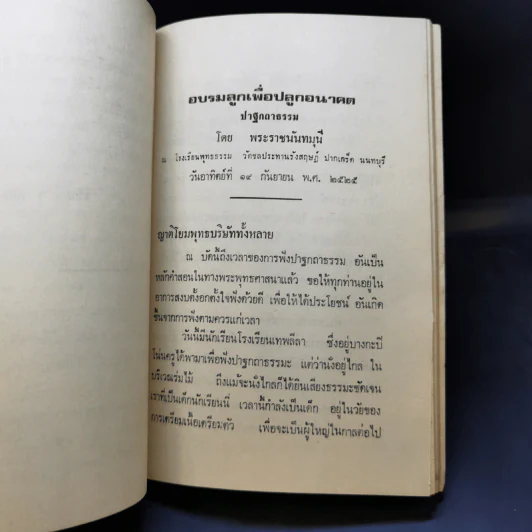 อบรมลูกเพื่อปลูกอนาคต
ปาฐกถาธรรม
โดย พระราชนันทมุนี
ณ โรงเรียนพุทธธรรม วัดชลประทานรังสฤษฎ์ ปากเกร็ด นนทบุรี
วันอาทิตย์ที่ ๑๙ กันยายน พ.ศ. ๒๕๒๕
ญาติโยมพุทธบริษัททั้งหลาย
ณ บัดนี้ถึงเวลาของการฟังปาฐกถาธรรม อันเป็น
หลักคำสอนในทางพระพุทธศาสนาแล้ว ขอให้ทุกท่านอยู่ใน
อาการสงบตั้งอกตั้งใจฟังด้วยดี เพื่อให้ได้ประโยชน์ อันเกิด
ขึ้นจากการฟังตามควรแก่เวลา
วันนี้มีนักเรียนโรงเรียนเทพลีลา ซึ่งอยู่บางกะปิ
โน่นครูได้พามาเพื่อฟังปาฐกถาธรรมะ แต่ว่านั่งอยู่ไกล ใน
บริเวณร่มไม้ ถึงแม้จะนั่งไกลก็ได้ยินเสียงธรรมะชัดเจน
เราที่เป็นเด็กนักเรียนนี่ เวลานี้กำลังเป็นเด็ก อยู่ในวัยของ
การเตรียมเนื้อเตรียมตัว เพื่อจะเป็นผู้ใหญ่ในกาลต่อไป